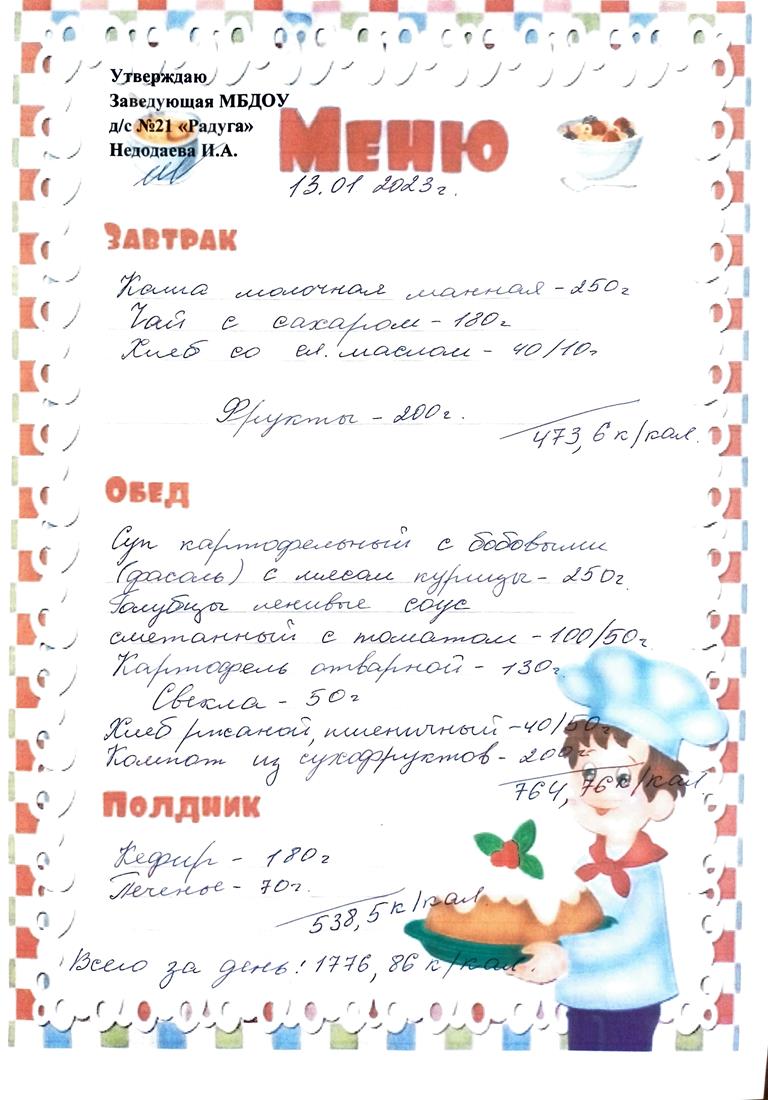 Утверждаю
Заведующая МБДОУ
д/с №21 «Радуга»
Недодаева И.А.
Меню
13.01 2023г.
Завтрак
Каша молочная манная - 250г
Чай с сахаром - 180г
Хлеб со сл. маслом - 40/10г
Фрукты - 200г.
473,6 к/кал.
Обед
Суп картофельный с бобовыми
(фасоль) с мясом курицы - 250г.
Голубцы ленивые соус
сметанный с томатом - 100/50г.
Картофель отварной - 130г.
Свекла - 50г
Хлеб ржаной, пшеничный - 40/50г
Компот из сухофруктов - 200г
764,76 к/кал.
Полдник
Кефир - 180г
Печенье - 70г.
538,5 к/кал.
Всего за день: 1776,86 к/кал.